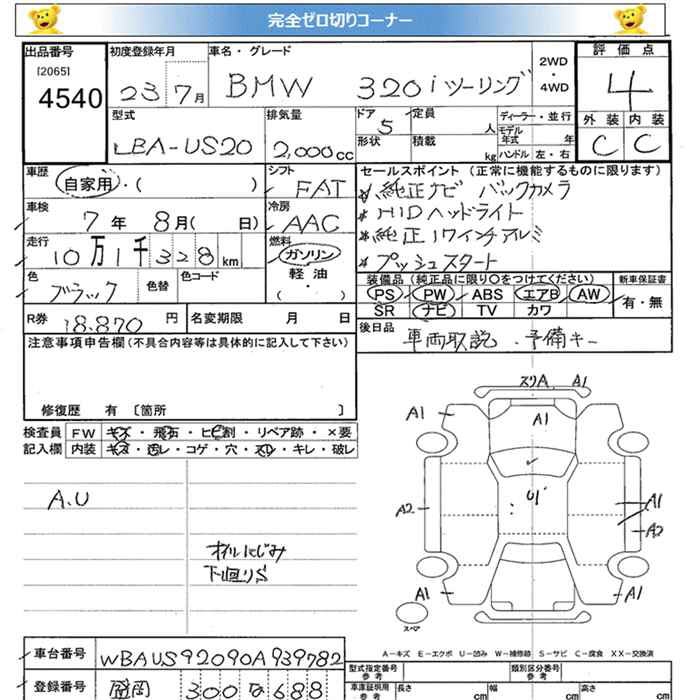 完全ゼロ切りコーナー
出品番号 初度登録年月 車名・グレード 2WD・4WD 評価点
[2065]
4540 23 7月 BMW 320iツーリング 4
型式 排気量 ドア 定員 ディーラー・並行 外装 内装
LBA-US20 2,000cc 5 人 モデル年式 年 C C
形状 積載 kg ハンドル 左・右
車歴 シフト セールスポイント(正常に機能するものに限ります)
自家用・( ) FAT *純正ナビ バックカメラ
車検 冷房 *HIDヘッドライト
7年 8月( 日) AAC *純正17インチアルミ
走行 燃料 *プッシュスタート
10万1千328km ガソリン
軽油
(・)
色 色替 色コード 装備品(純正品に限り○をつけてください) 新車保証書
ブラック PS PW ABS エアB AW 有・無
SR ナビ TV カワ
R券 18,870円 名変期限 月 日 後日品 車両取説・予備キー
注意事項申告欄(不具合内容等は具体的に記入して下さい)
修復歴 有 〔箇所 〕
検査員 FW キズ・飛石・ヒビ割・リペア跡・×要
記入欄 内装 キズ・汚レ・コゲ・穴・スレ・キレ・破レ
スリA A1
A1 A1 A1
A.U
U1
A2 A1
A2
オイルにじみ
下廻りS
A1 A1
スペア
A-キズ E-エクボ U-凹み W-補修跡 S-サビ C-腐食 XX-交換済
車台番号 WBAUS92090A939782 型式指定番号 参考 類別区分番号 参考
登録番号 盛岡 300 な 688 車庫証明用 参考 長さ cm 幅 cm 高さ cm